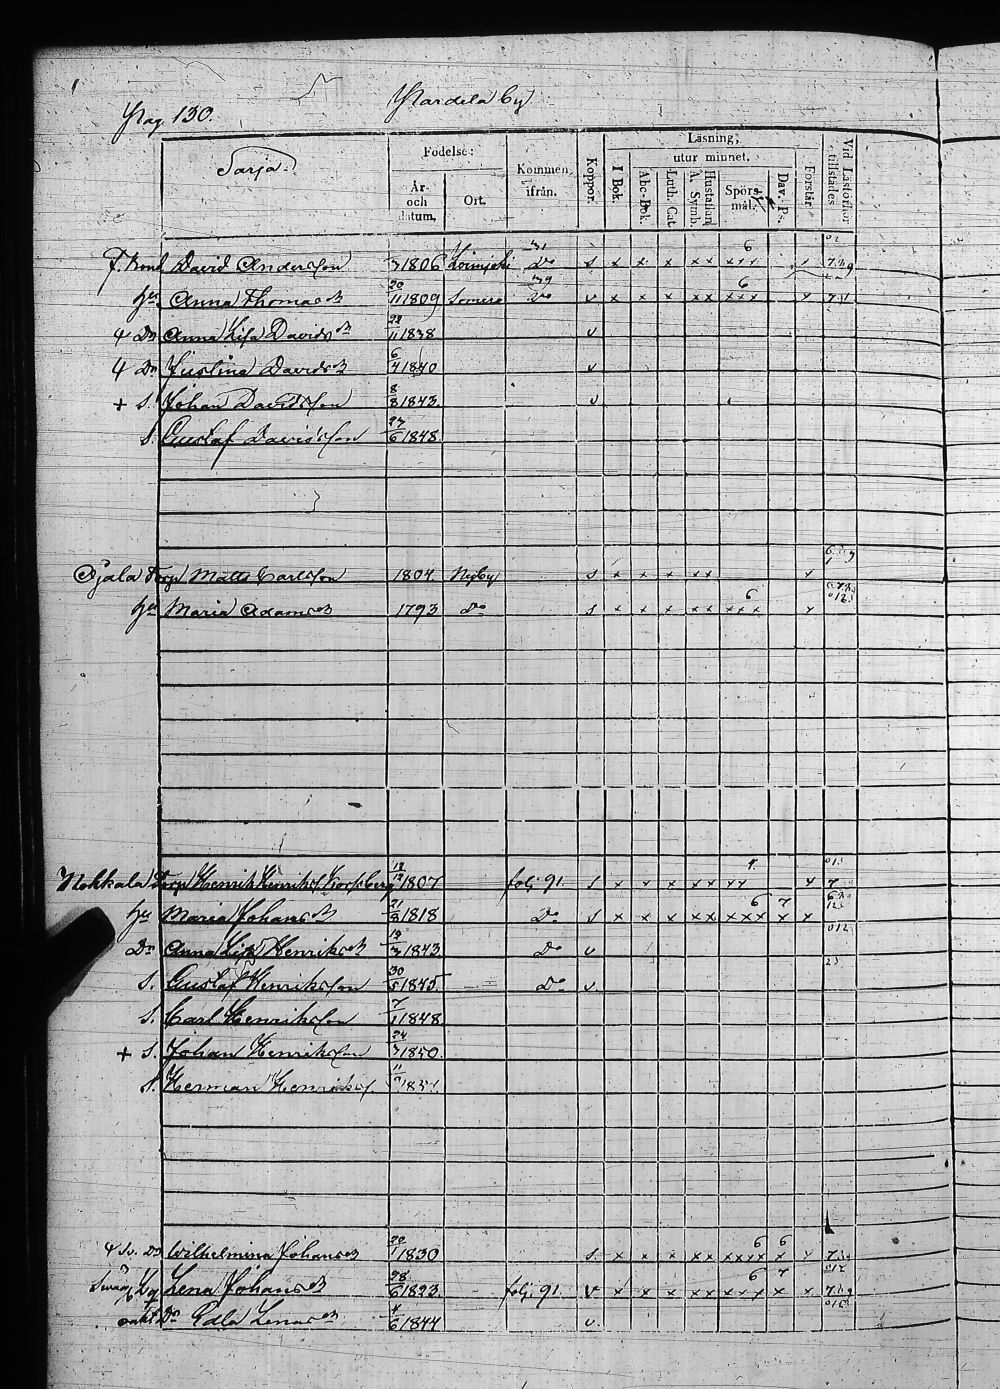 Pag. 130.
Sarja.
Födelse:
År och datum,
Ort.
Kommen ifrån.
Koppor.
Läsning,
I Bok.
utur minnet.
Abc-Bok.
Luth. Cat.
Hustaflan A. Symb.
Spörs-mål.
Dav. Ps.
Förstår
Vid Läseförhör tillstädes
David Andersson 1806 31 Do s x x x x x x x x 6 x
hu Anna Thomasdr 20/11 1809 Somero 39 Do v x x x x x x x x 6 x
Dr Anna Lisa Davidsdr 11 1838 v
Dr Justina Davidsdr 6/4 1840 v
+ S. Johan Davidsson 8/8 1843. v
S. Gustaf Davidsson 27/6 1848.
Ojala Torp Matts Carlsson 1804 Nyby s x x x x x x
hu Maria Adamsdr 1793 Do s x x x x x x x x 6 x
Nokkala Torp Henrik Henriks. 12 1807 folj 91. s x x x x x x x x
hu Maria Johansdr 21 1818 Do s x x x x x x x x 6 x 7 x
Dr Anna Lisa Henriksdr 12/3 1843 Do v
S. Gustaf Henriksson 30/5 1845. Do v
S. Carl Henriksson 7/1 1848.
+ S. Johan Henriksson 24/3 1850.
S. Herman Henrikss. 11
Wilhelmina Johansdr 1 1830 s x x x x x x x x x 6 x 6 x
Lena Johansdr 28/6 1823 folj 91. v x x x x x x x x x 6 x 7 x
oäkt Dr Edla Lenasdr 4/6 1844 v